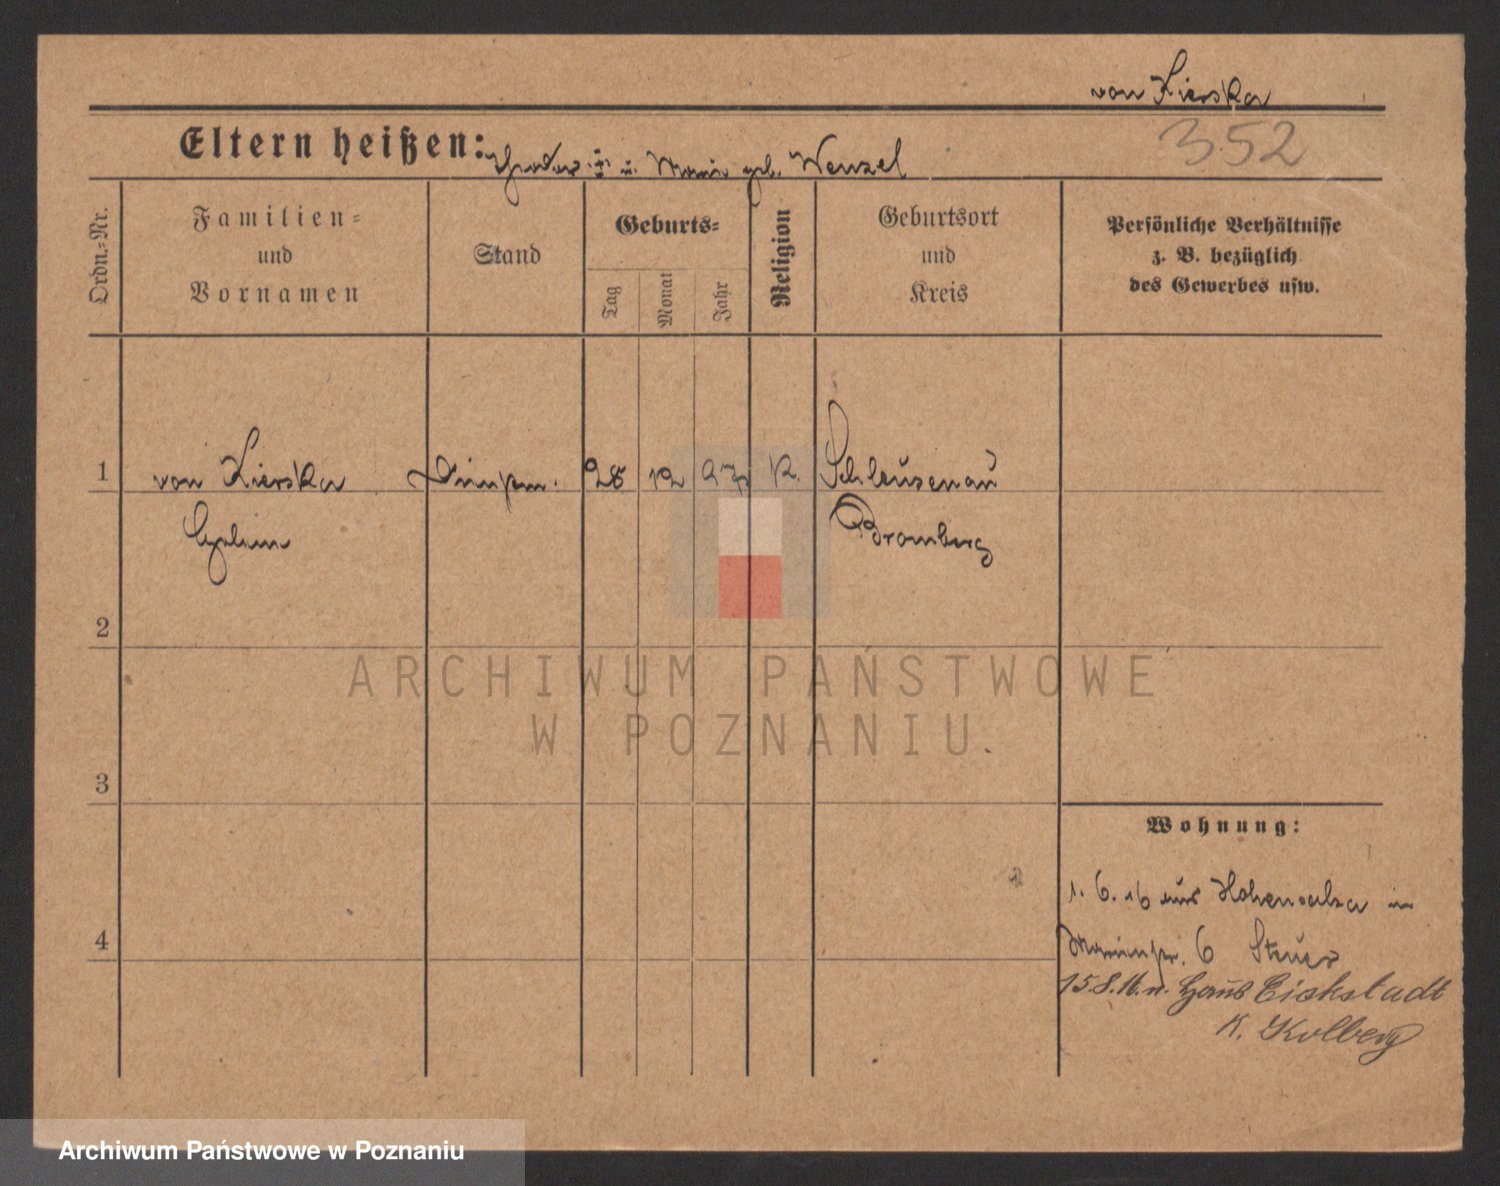 von Zierska
352
Eltern heißen: Theodor u. Marie geb. Wenzel
Ordn.=Nr.
Familien=
und
Vornamen
Stand
Geburts=
Tag
Monat
Jahr
Religion
Geburtsort
und
Kreis
Persönliche Verhältnisse
z. B. bezüglich
des Gewerbes usw.
1 von Zierska 28 12 97 K. Schleusenau
Bromberg
2
ARCHIWUM PAŃSTWOWE
W POZNANIU.
3
Wohnung:
1. 6. 16 aus Hohensalza in
4 6 Steuer
15.8.16. n. Haus Eickstadt
K. Kolberg
Archiwum Państwowe w Poznaniu